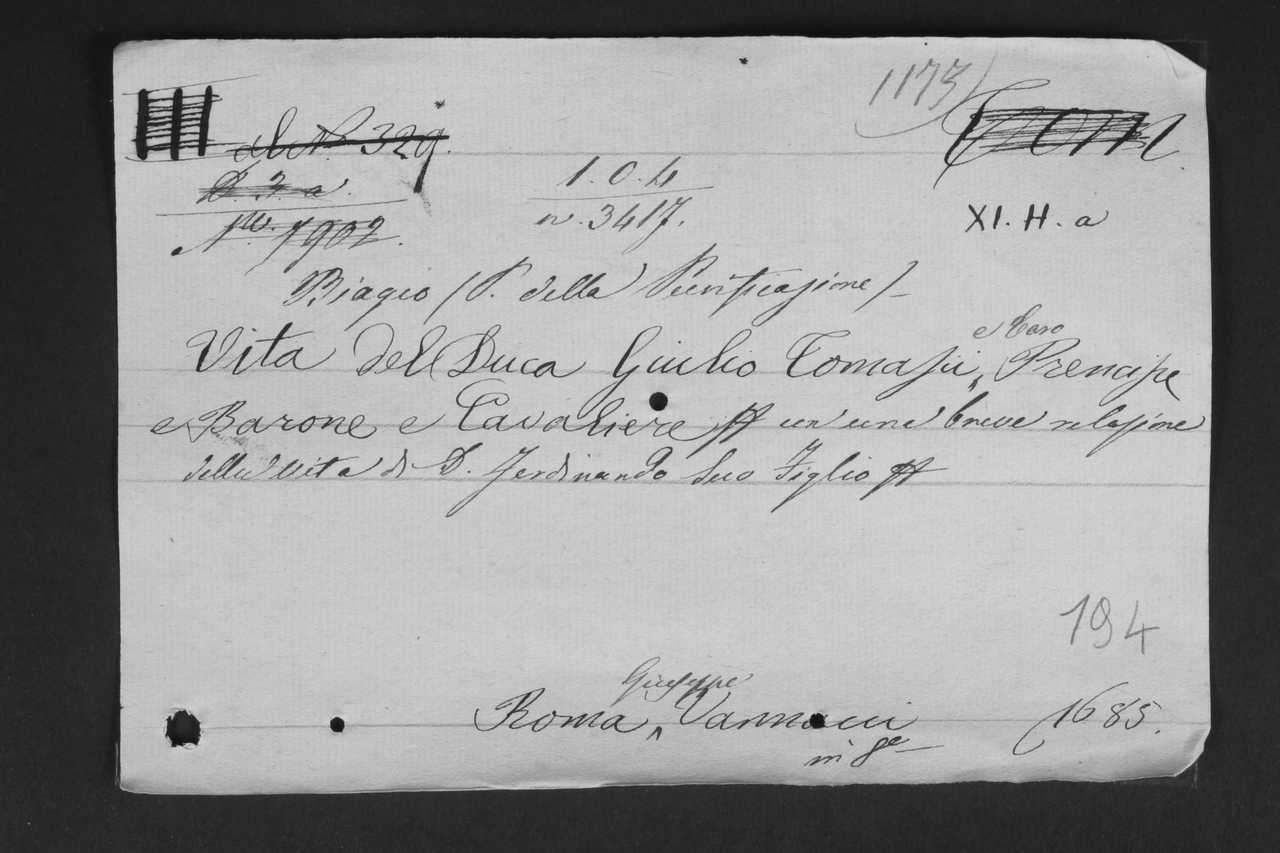 1173
Tom
N. 329.
D. 3. a.
1. 0. 4
XI. H. a
No. 7902.
n. 3417.
Biagio (P. della Purificazione)
e Caro
Vita del Duca Giulio Tomasii, Prencipe
e Barone e Cavaliere con una breve relazione
della Vita di D. Ferdinando suo Figlio
194
Giuseppe
Roma, Vannacci 1685.
in 8e